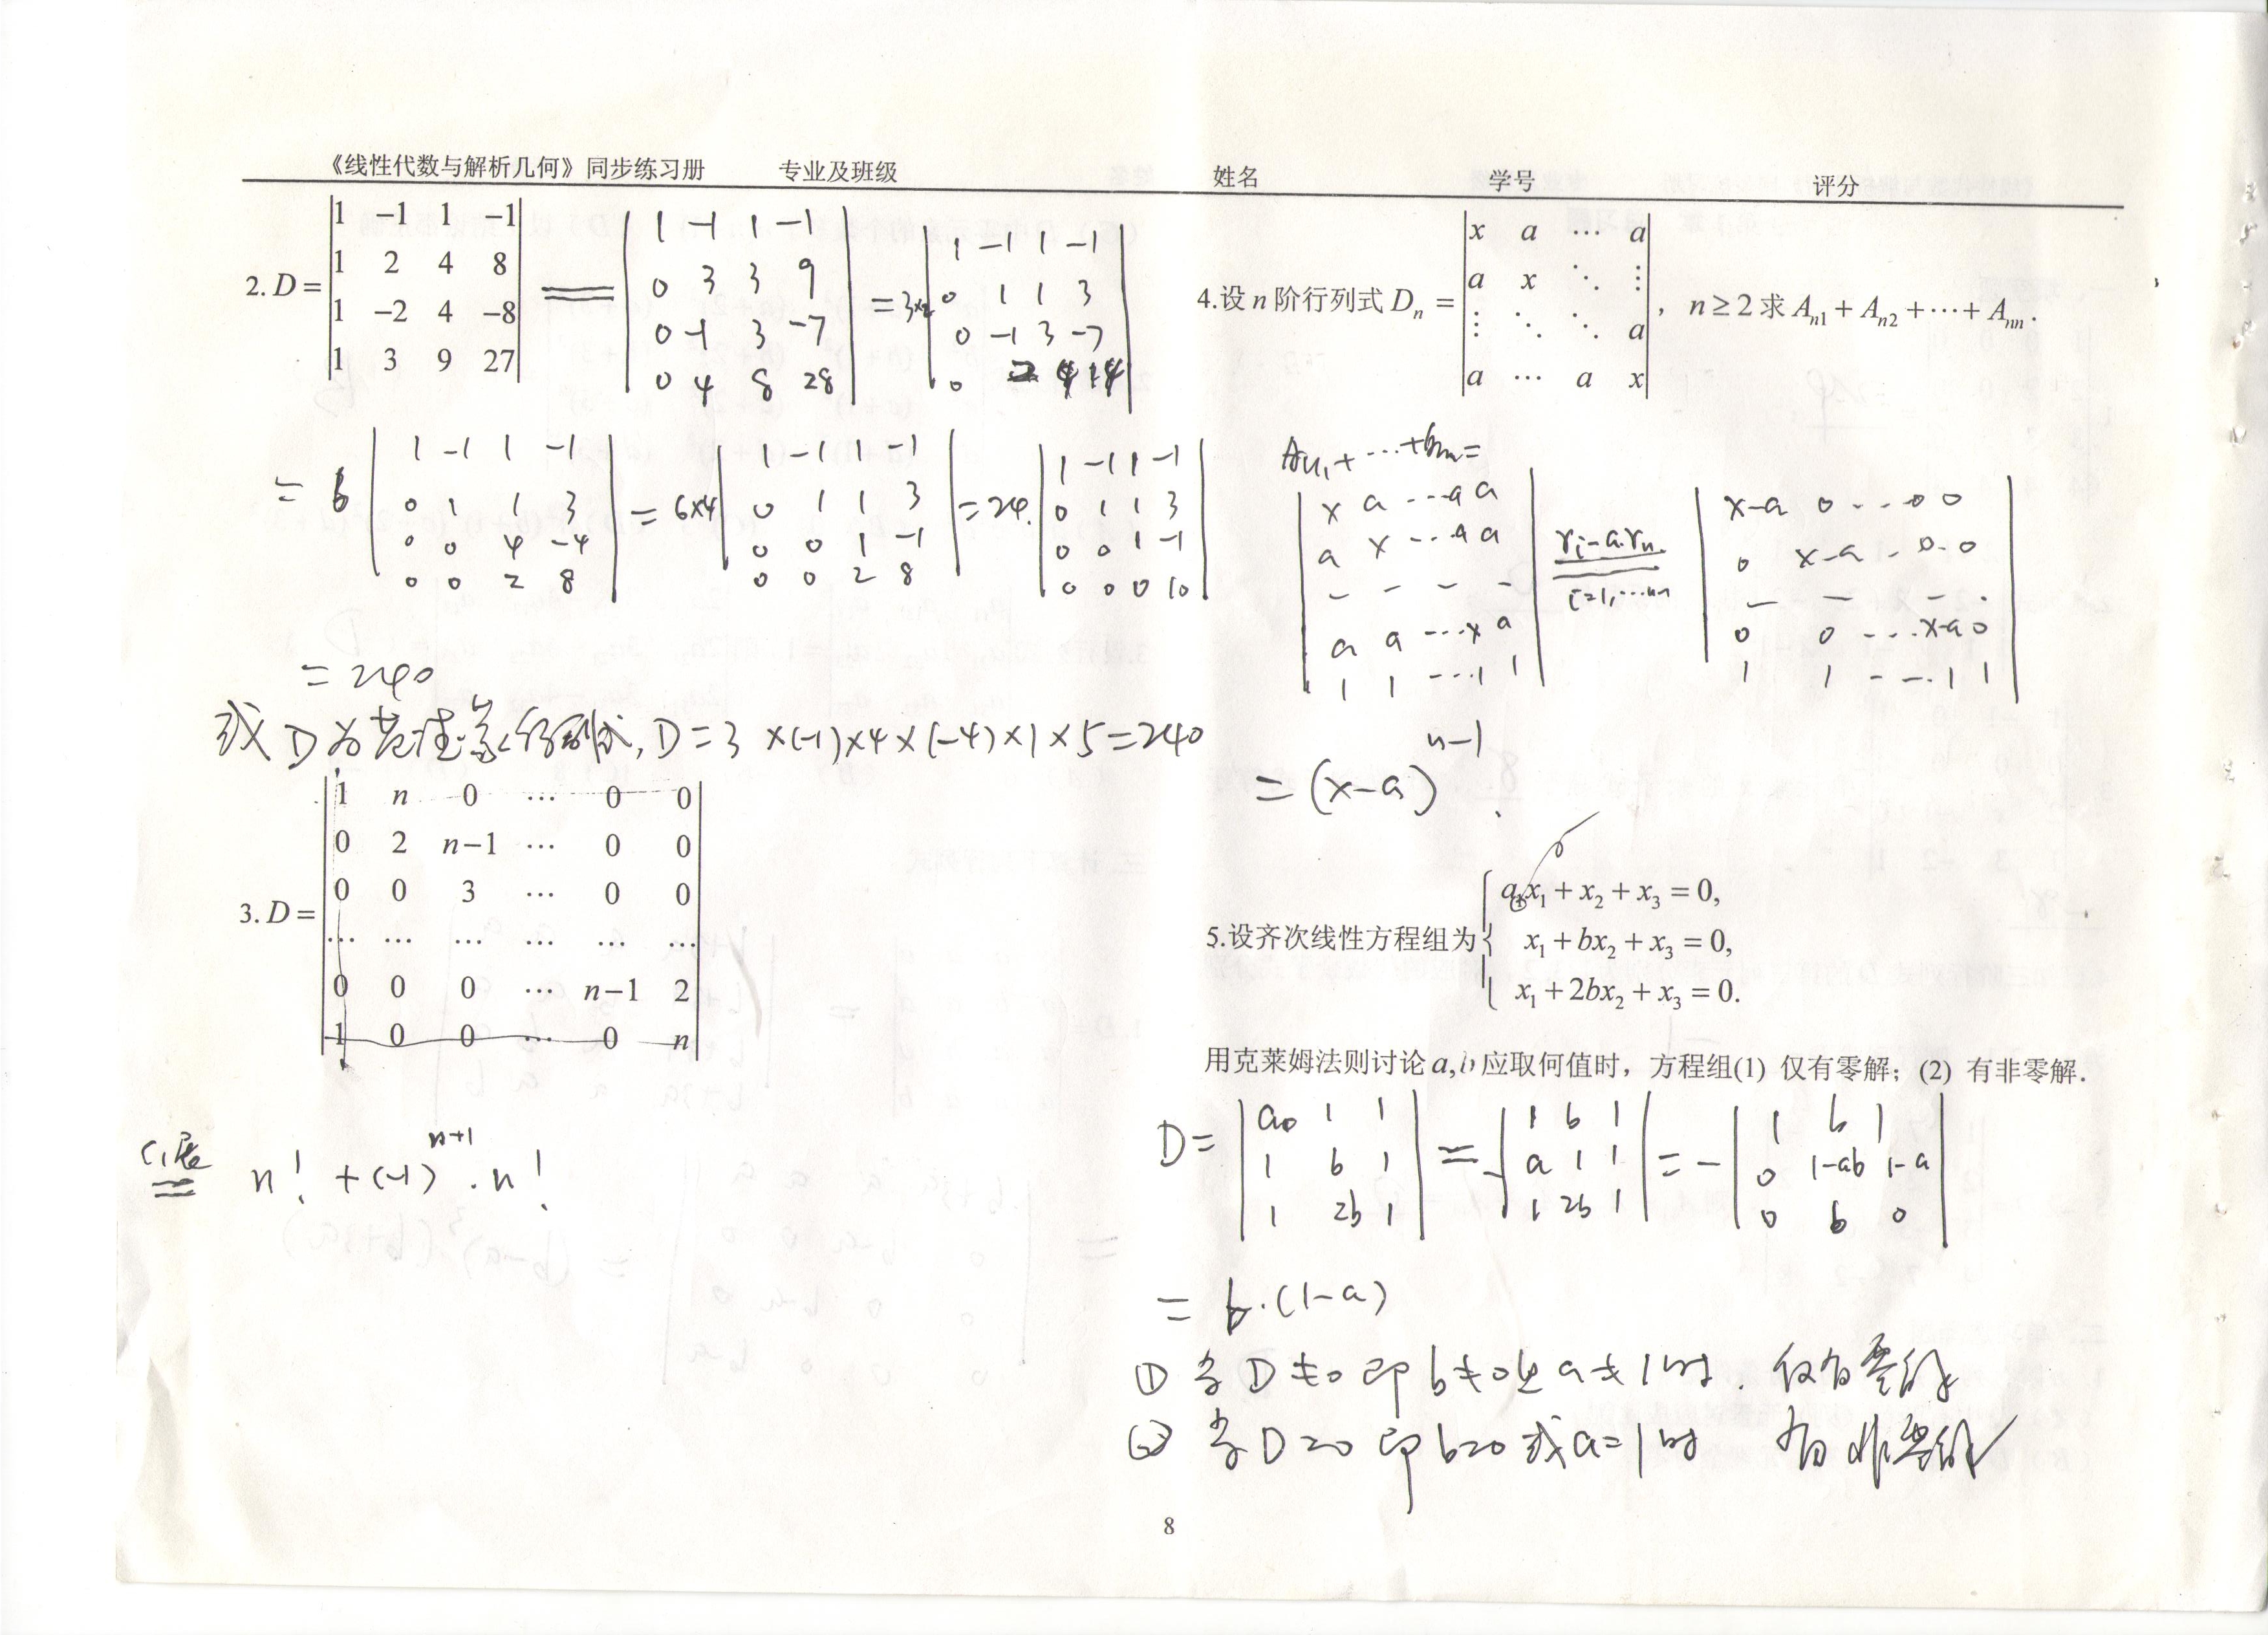 《线性代数与解析几何》同步练习册 专业及班级 姓名 学号 评分
2. D =
1 −1 1 −1
1 2 4 8
1 −2 4 −8
1 3 9 27
=
1 −1 1 −1
0 3 3 9
0 −1 3 −7
0 4 8 28
= 3×2
1 −1 1 −1
0 1 1 3
0 −1 3 −7
0 2 4 14
= 6
1 −1 1 −1
0 1 1 3
0 0 4 −4
0 0 2 8
= 6×4
1 −1 1 −1
0 1 1 3
0 0 1 −1
0 0 2 8
= 24.
1 −1 1 −1
0 1 1 3
0 0 1 −1
0 0 0 10
= 240
或 D 为范德蒙行列式, D = 3 ×(−1)×4×(−4)×1×5=240
3. D =
1 n 0 ⋯ 0 0
0 2 n−1 ⋯ 0 0
0 0 3 ⋯ 0 0
⋯ ⋯ ⋯ ⋯ ⋯ ⋯
0 0 0 ⋯ n−1 2
1 0 0 ⋯ 0 n
C₁展
= n! + (−1)ⁿ⁺¹ · n!
4.设 n 阶行列式 Dₙ =
x a ⋯ a
a x ⋱ ⋮
⋮ ⋱ ⋱ a
a ⋯ a x
, n ≥ 2 求 Aₙ₁ + Aₙ₂ + ⋯ + Aₙₙ .
Aₙ₁ + ⋯ + Aₙₙ =
x a ⋯ a a
a x ⋯ a a
– – – –
a a ⋯ x a
1 1 ⋯ 1 1
rᵢ−a·rₙ
i=1,⋯n-1
x−a 0 ⋯ 0 0
0 x−a – 0 – 0
– – – .
0 0 ⋯ x−a 0
1 1 – – 1 1
= (x−a)ⁿ⁻¹ .
5.设齐次线性方程组为
ax₁ + x₂ + x₃ = 0,
x₁ + bx₂ + x₃ = 0,
x₁ + 2bx₂ + x₃ = 0.
用克莱姆法则讨论 a,b 应取何值时，方程组(1) 仅有零解；(2) 有非零解．
D =
a 1 1
1 b 1
1 2b 1
= −
1 b 1
a 1 1
1 2b 1
= −
1 b 1
0 1−ab 1−a
0 b 0
= b·(1−a)
① 当 D ≠0 即 b≠0 且 a≠1时. 仅有零解
② 当 D=0 即 b=0 或 a=1时 有非零解
8